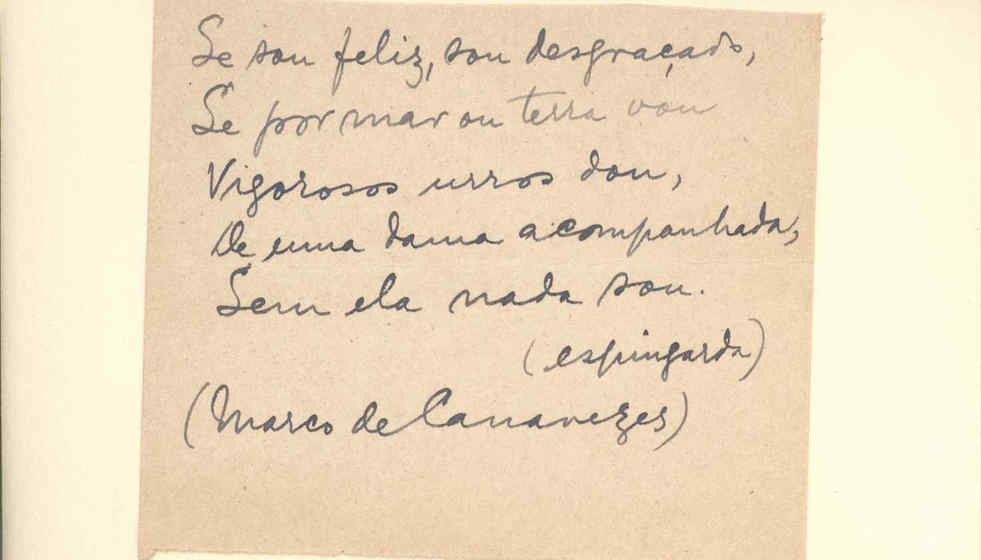 Se sou feliz, sou desgraçado,
Se por mar ou terra vou
Vigorosos urros dou,
De uma dama acompanhada,
Sem ela nada sou.
(espingarda)
(Marco de Canavezes)